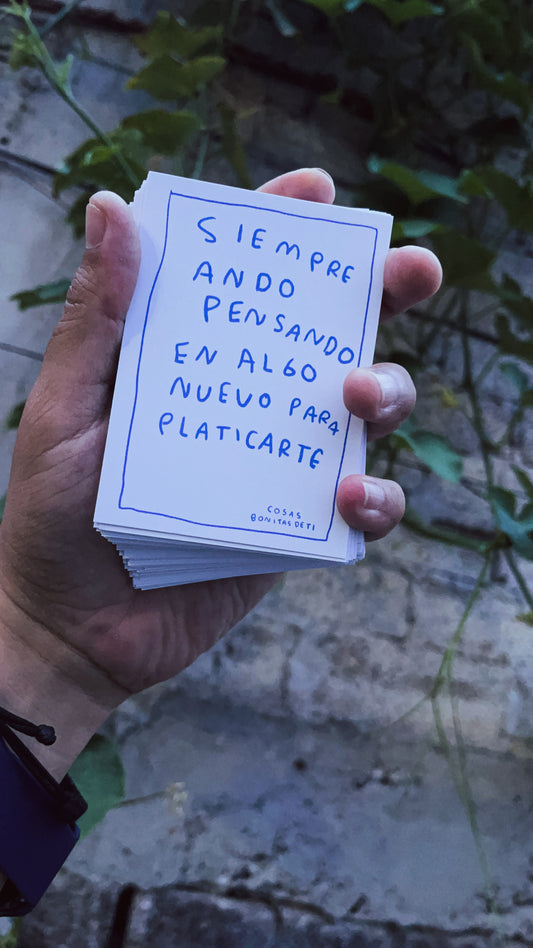 SIEMPRE
ANDO
PENSANDO
EN ALGO
NUEVO PARA
PLATICARTE
COSAS
BONITAS DE TI